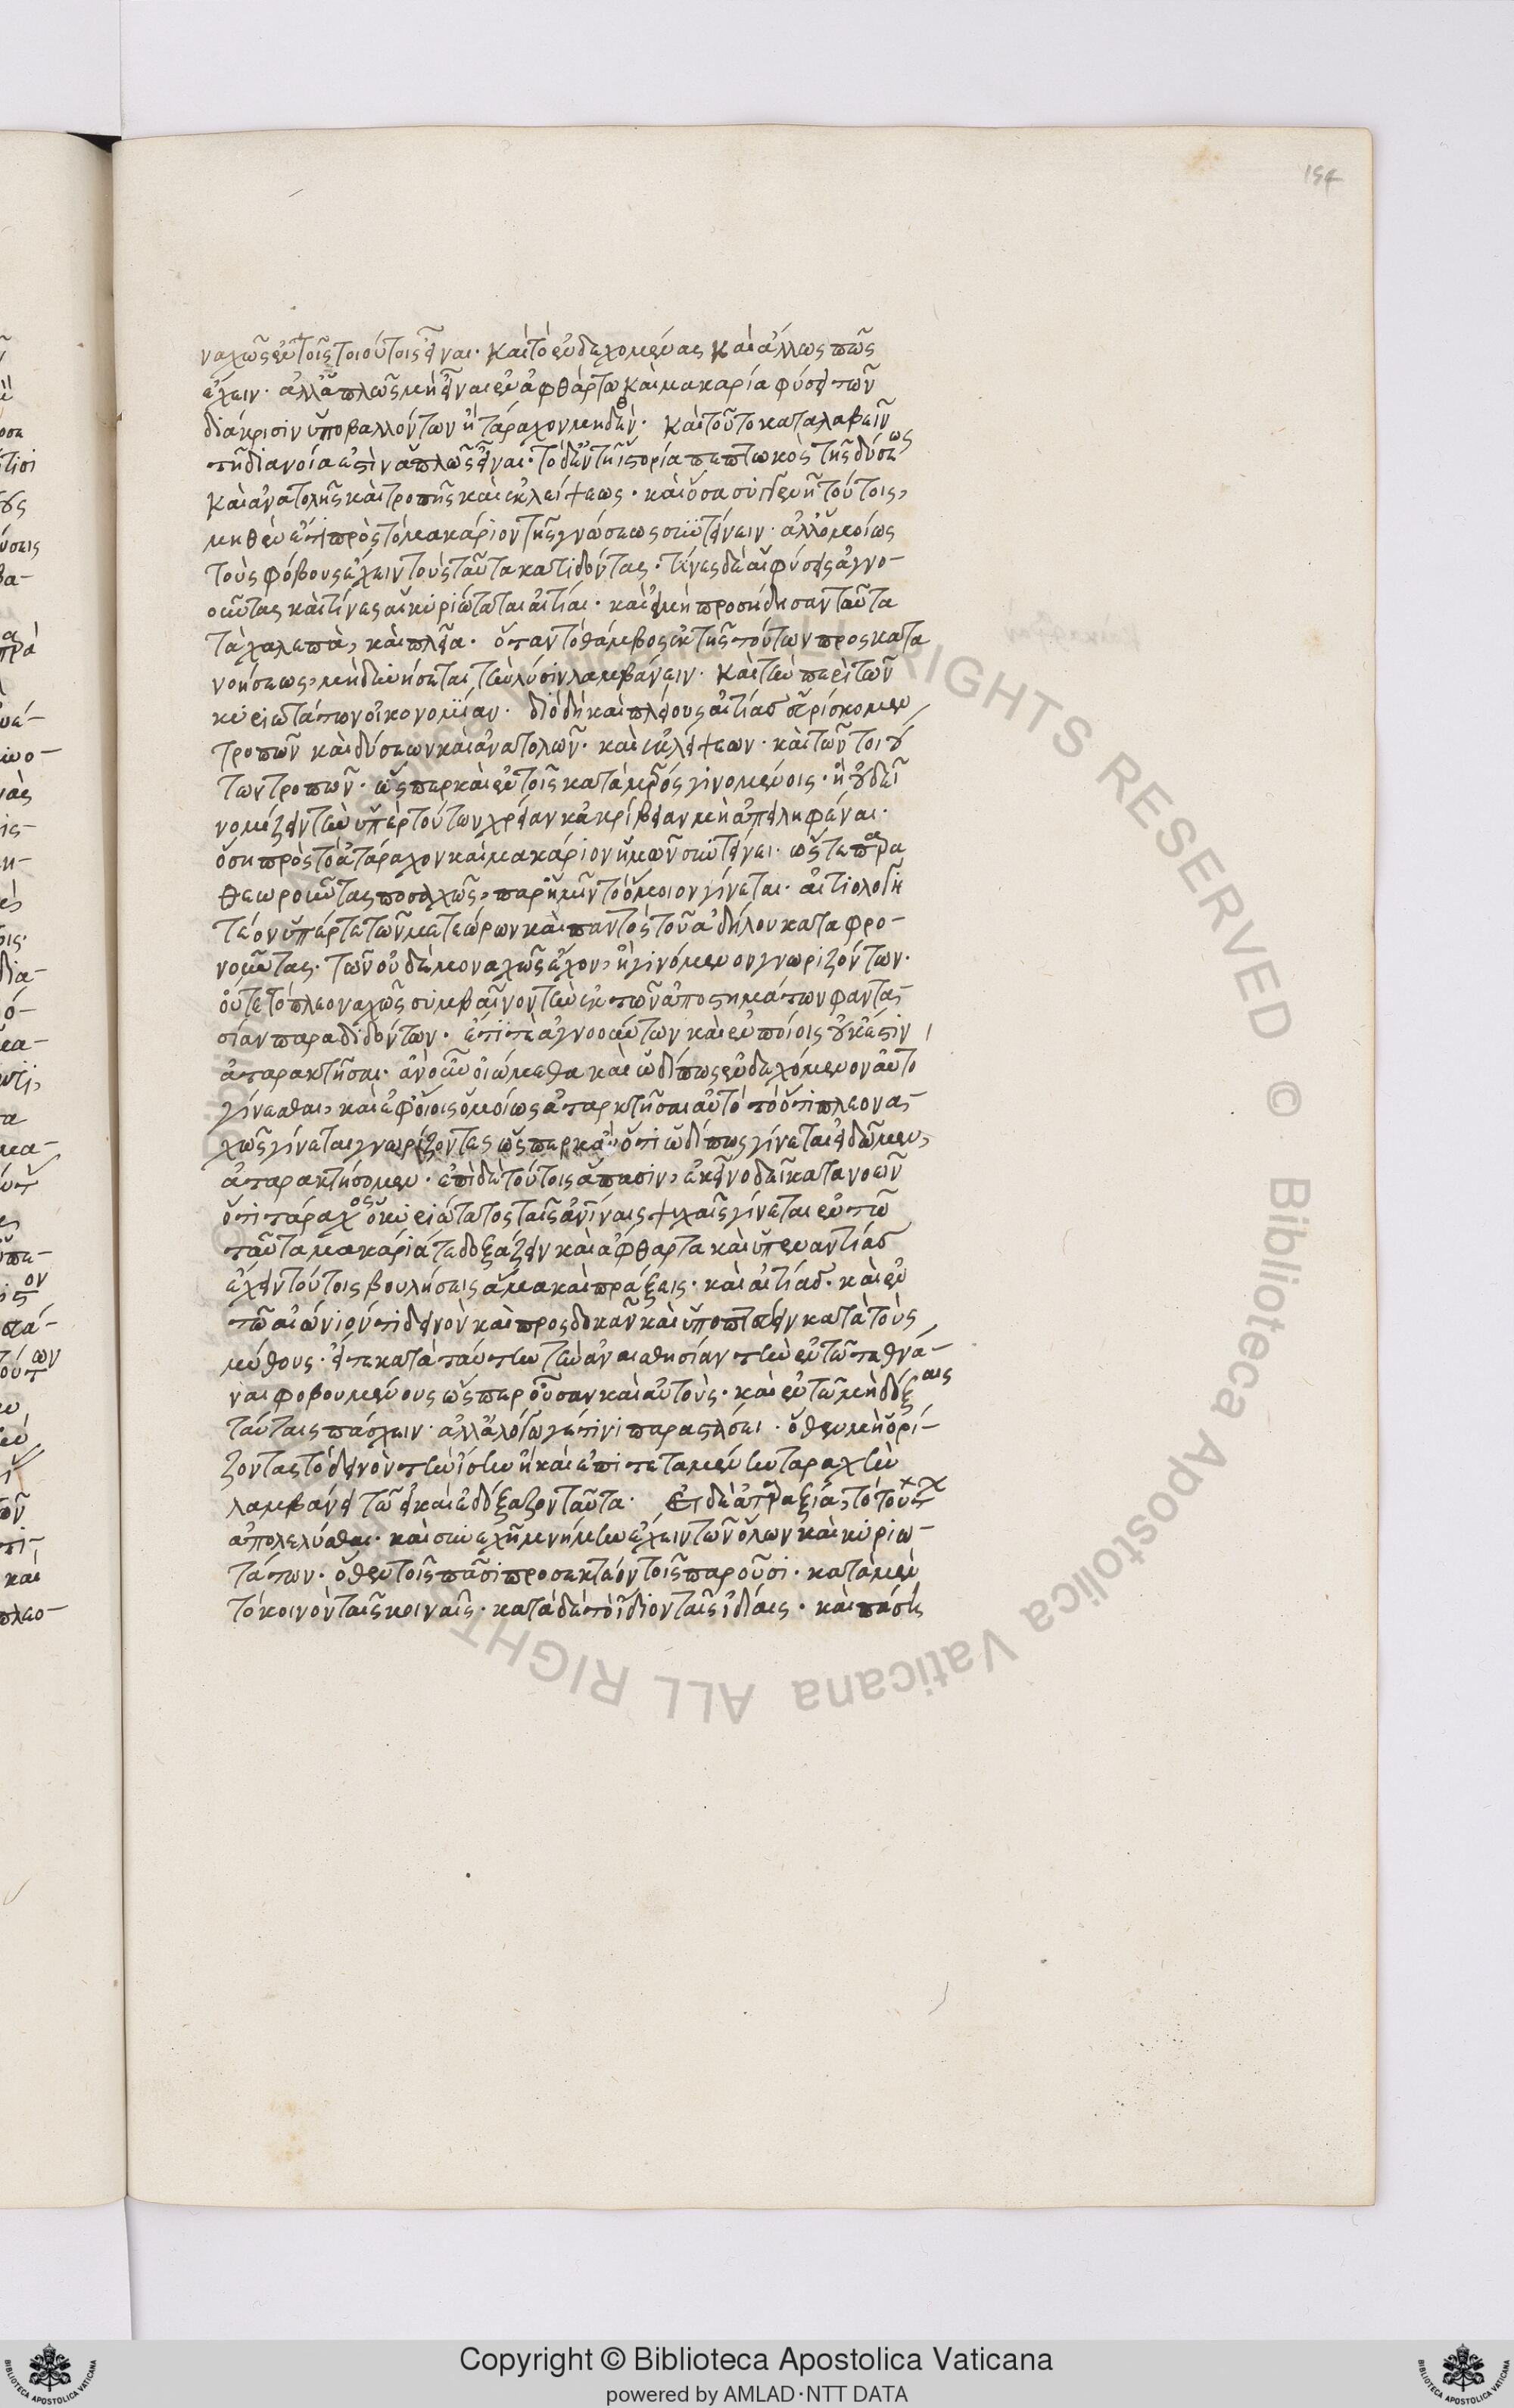 154
ναχῶς ἐν τοῖς τοιούτοις εἶναι· καὶ τὸ ἐνδεχομένως καὶ ἄλλως πῶς
ἔχειν· ἀλλ' ἁπλῶς μὴ εἶναι ἐν ἀφθάρτω καὶ μακαρία φύσει τῶν
διάκρισιν ὑποβαλλόντων ἢ τάραχον μηθὲν· καὶ τοῦτο καταλαβεῖν
τῆ διανοία ἐστὶν ἁπλῶς εἶναι· τὸ δ' ἐν τῆ ἱστορία πεπτωκὸς τῆς δύσεως
καὶ ἀνατολῆς καὶ τροπῆς καὶ ἐκλείψεως· καὶ ὅσα συγγενῆ τούτοις,
μηθὲν ἔτι πρὸς τὸ μακάριον τῆς γνώσεως συντείνειν· ἀλλ' ὁμοίως
τοὺς φόβους ἔχειν τοὺς ταῦτα κατιδόντας· τίνες δὲ αἱ φύσεις ἀγνο-
οῦντας καὶ τίνες αἱ κυριώταται αἰτίαι· καὶ εἰ μὴ προσήδησαν ταῦτα
τὰ χαλεπὰ, καὶ πλεῖα· ὅταν τὸ θάμβος ἐκ τῆς τούτων προςκατα
νοήσεως, μὴ δύνηται τὴν λύσιν λαμβάνειν· καὶ τὴν περὶ τῶν
κυριωτάτων οἰκονομίαν· διὸ δὴ καὶ πλείους αἰτίας εὑρίσκομεν
τροπῶν καὶ δύσεων καὶ ἀνατολῶν· καὶ ἐκλείψεων· καὶ τῶν τοιού
των τροπῶν· ὥςπερ καὶ ἐν τοῖς κατὰ μέρος γινομένοις· ἢ οὐ δεῖ
νομίζειν τὴν ὑπὲρ τούτων χρείαν κἀκρίβειαν μὴ ἀπειληφέναι·
ὅση πρὸς τὸ ἀτάραχον καὶ μακάριον ἡμῶν συντείνει· ὥςτε παρα
θεωροῦντας ποσαχῶς, παρ' ἡμῖν τὸ ὅμοιον γίνεται· αἰτιολογη
τέον ὑπέρ τε τῶν μετεώρων καὶ παντὸς τοῦ ἀδήλου καταφρο-
νοῦντας· τῶν οὐδὲ μοναχῶς ἔχον, ἢ γινόμενον γνωριζόντων·
οὔτε τὸ πλεοναχῶς συμβαῖνον τὴν ἐκ τῶν ἀποστημάτων φαντα-
σίαν παραδιδόντων· ἔτι τε ἀγνοούντων καὶ ἐν ποίοις οὐκ ἔστιν
ἀταρακτῆσαι· ἂν οὖν οἰώμεθα καὶ ὡδί πως ἐνδεχόμενον αὐτὸ
γίνεσθαι, καὶ ἐφ' οἵοις ὁμοίως ἀταρκτῆσαι αὐτὸ τὸ ὅτι πλεονα-
χῶς γίνεται γνωρίζοντας ὥςπερ κἂν ὅτι ὡδί πως γίνεται εἰδῶμεν,
ἀταρακτήσομεν· ἐπὶ δὲ τούτοις ἅπασιν, ἐκεῖνο δεῖ κατανοεῖν
ὅτι τάραχος ὁ κυριώτατος ταῖς ἀνίναις ψυχαῖς γίνεται ἐν τῶ
ταῦτα μακάριά τε δοξάζειν καὶ ἄφθαρτα καὶ ὑπεναντίας
ἔχειν τούτοις βουλήσεις ἅμα καὶ πράξεις· καὶ αἰτίας· καὶ ἐν
τῶ αἰώνιόν τι δεινὸν καὶ προςδοκᾶν καὶ ὑποπτεύειν κατὰ τοὺς
μύθους· εἴτε κατὰ ταύτην τὴν ἀναισθησίαν τὴν ἐν τῶ τεθνά-
ναι φοβουμένους ὥςπερ οὖσαν καὶ αὐτοὺς· καὶ ἐν τῶ μὴ δόξαις
ταύταις πάσχειν· ἀλλ' ἀλόγω γέ τινι παραστάσει· ὅθεν μὴ ὁρί-
ζοντας τὸ δεινὸν τὴν ἴσην ἢ καὶ ἐπιτεταμένην ταραχὴν
λαμβάνει τῶ εἰ καὶ ἐδόξαζον ταῦτα· Ἡ δὲ ἀταραξία, τὸ τούτων
ἀπολελύσθαι· καὶ συνεχῆ μνήμην ἔχειν τῶν ὅλων καὶ κυριω-
τάτων· ὅθεν τοῖς πᾶσι προσεκτέον τοῖς παροῦσι· κατὰ μὲν
τὸ κοινὸν ταῖς κοιναῖς· κατὰ δὲ τὸ ἴδιον ταῖς ἰδίαις· καὶ πάσης
Copyright © Biblioteca Apostolica Vaticana
powered by AMLAD·NTT DATA